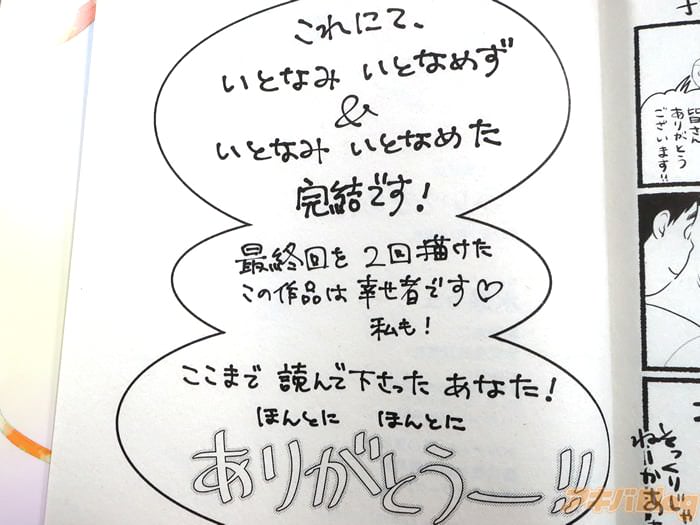 これにて、
いとなみ いとなめず
&
いとなみ いとなめた
完結です!
最終回を 2回描けた
この作品は 幸せ者です♡
私も!
ここまで 読んで下さった あなた!
ほんとに ほんとに
ありがとうー!!
皆さん
ありがとう
ございます!!
そっくりじゃ
ねーかあ
アキバBlog